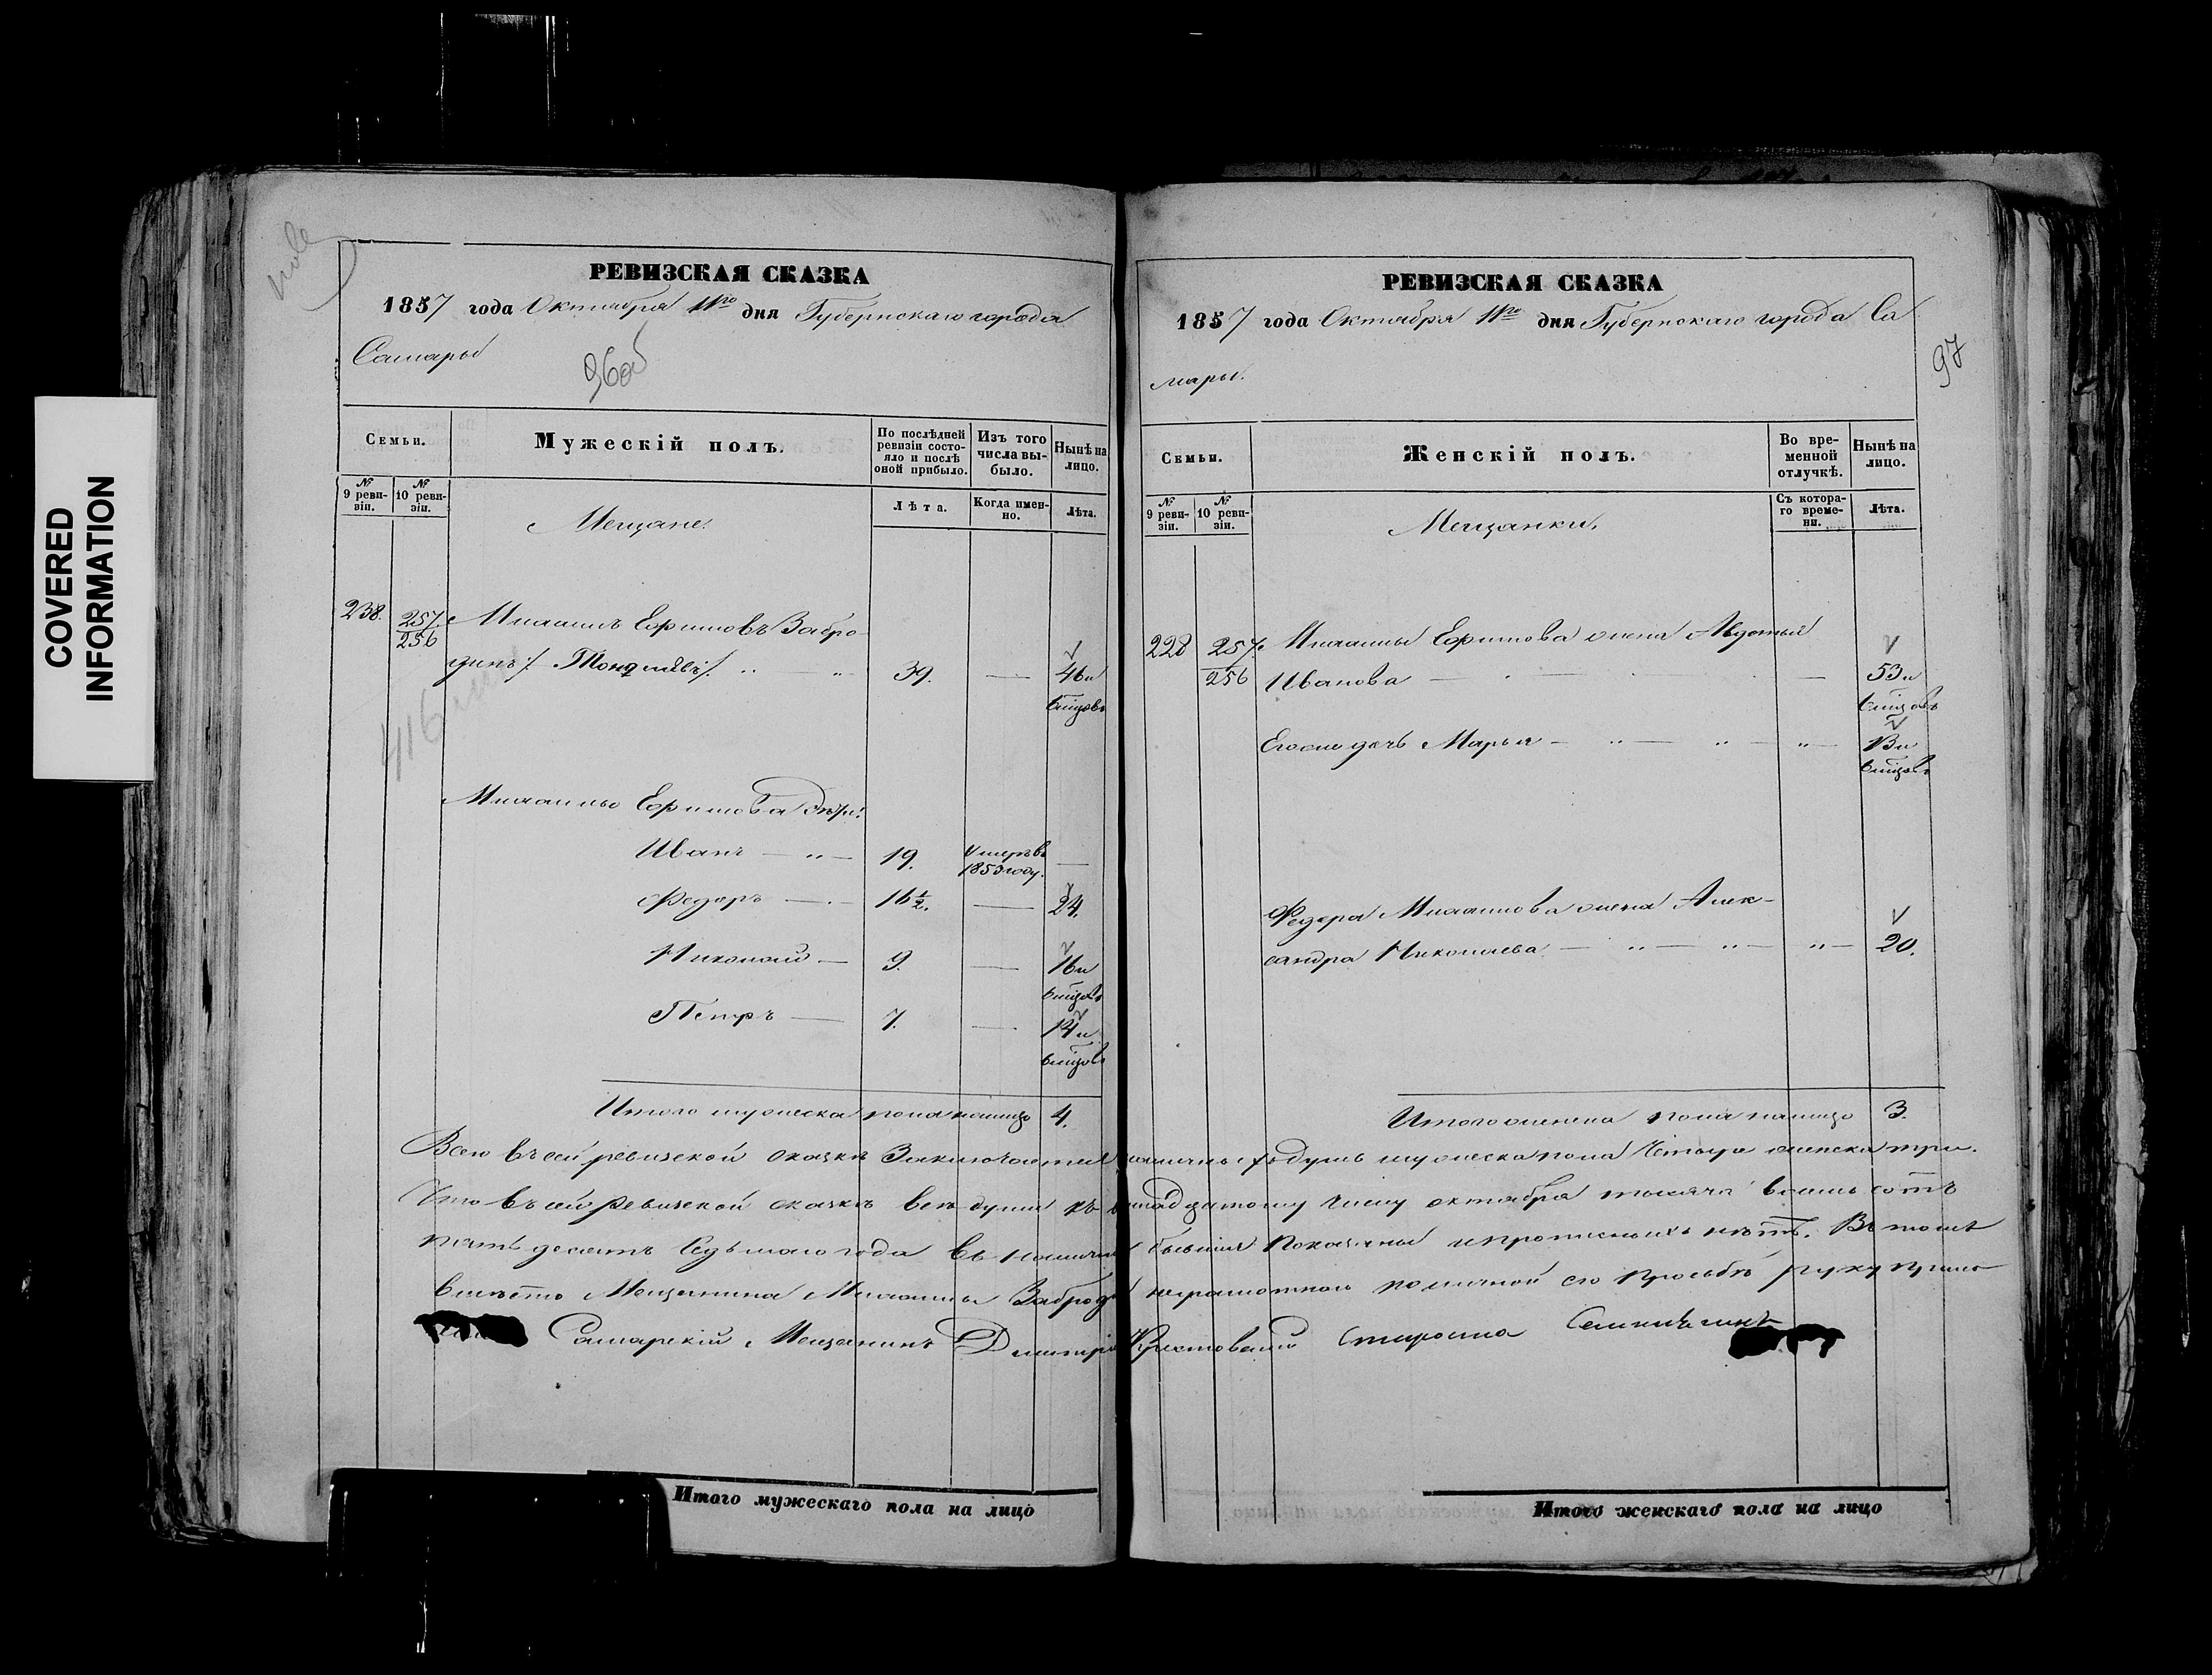 COVERED
INFORMATION
РЕВИЗСКАЯ СКАЗКА
1857 года Октября 11го дня Губернскаго города
Самары
96об
Семьи.
Мужескій полъ.
По послѣдней ревизіи состояло и послѣ оной прибыло.
Изъ того числа выбыло.
Нынѣ на лицо.
№ 9 ревизіи.
№ 10 ревизіи.
Мещане.
Лѣта.
Когда именно.
Лѣта.
238. 257. Ефимовъ Забро-
256
динъ 39. — 46 и
вмѣщовъ
Ефимова дѣти:
Иванъ — 19. Умеръ въ 1853 году. —
Федоръ — 16½. — 24.
Николай — 9. — 16 и
Петръ — 7. — 14 и
Итого мужеска пола налицо 4.
РЕВИЗСКАЯ СКАЗКА
1857 года Октября 11го дня Губернскаго города Са
мары.
97
Семьи.
Женскій полъ.
Во временной отлучкѣ.
Нынѣ на лицо.
№ 9 ревизіи.
№ 10 ревизіи.
Мещанки.
Съ котораго времени.
Лѣта.
228 257. Ефимова жена Авдотья
256 Иванова — 53 и
Его же дочь Марья — 13 и
Федора жена Алек-
сандра Николаева — 20.
Итого женска пола налицо 3.
Всего въ сей ревизской сказкѣ заключается наличныхъ душъ мужеска пола четыре женска три.
Что въ сей ревизской сказкѣ всѣ души къ одинадцатому числу октября тысяча восемь сотъ
пятьдесятъ седьмаго года въ наличности бывшія показаны и прописныхъ нѣтъ. Въ томъ
вмѣсто Мещанина неграмотнаго по личной его просьбѣ руку прило-
Самарскій Мещанинъ Дмитрій Староста
Итого мужескаго пола на лицо
Итого женскаго пола на лицо